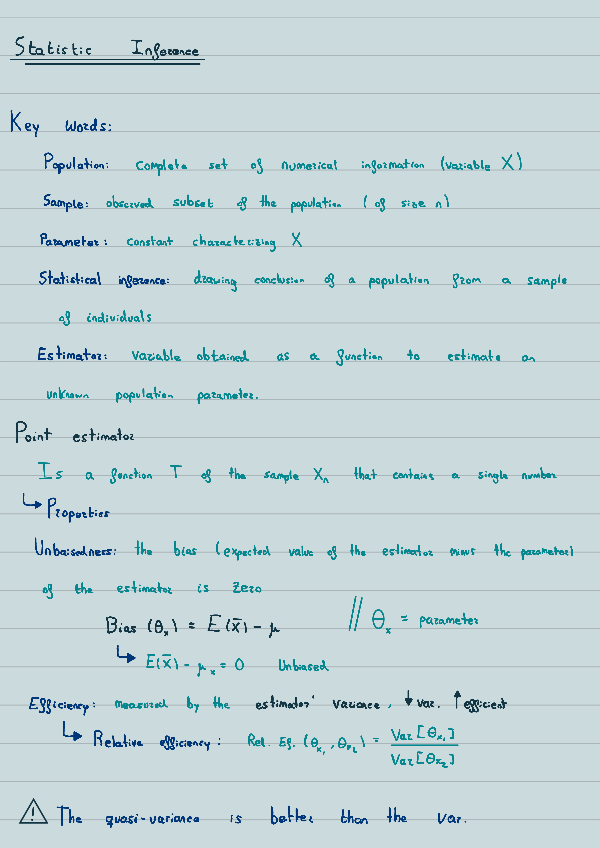 Statistic Inference
Key Words:
Population: complete set of numerical information (variable X)
Sample: observed subset of the population (of size n)
Parameter: constant characterizing X
Statistical inference: drawing conclusion of a population from a sample
of individuals
Estimator: variable obtained as a function to estimate an
unknown population parameter.
Point estimator
Is a function T of the sample Xn that contains a single number
↳ Properties
Unbaisedness: the bias (expected value of the estimator minus the parameter)
of the estimator is zero
Bias (θx) = E(x̄) - μ // θx = parameter
↳ E(x̄) - μx = 0 Unbiased
Efficiency: measured by the estimator' variance, ↓ var. ↑ efficient
↳ Relative efficiency: Rel. Ef. (θx₁, θx₂) = Var[θx₁] / Var[θx₂]
⚠ The quasi-variance is better than the var.